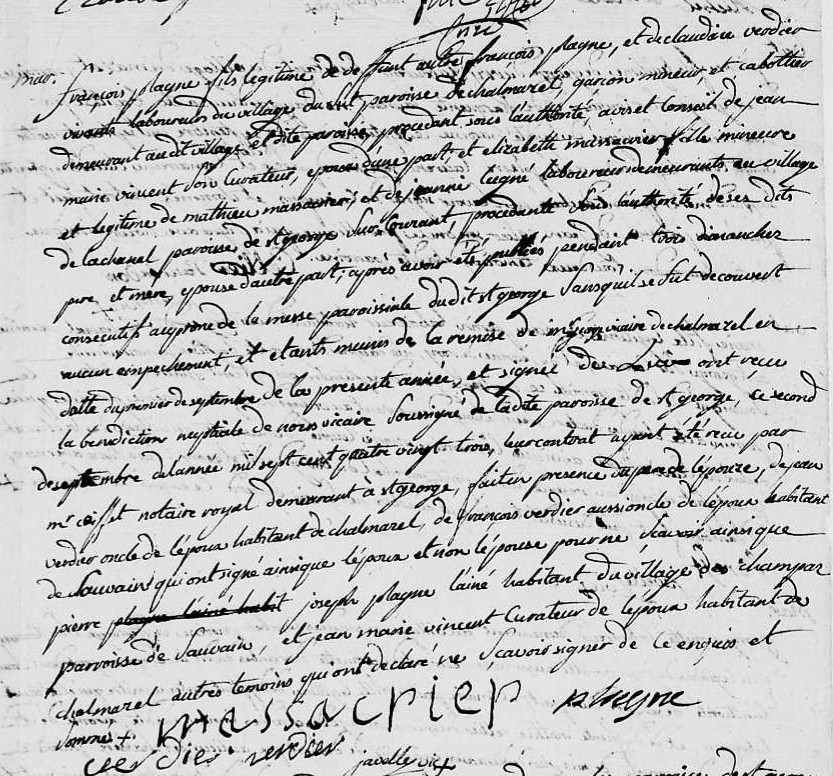 mar. françois plagne fils legitime de deffunt autre françois plagne, et declaudine verdier
vivants laboureurs du village du paroisse dechalmazel, garçon mineur, et cabottier
demeurant audit village et dite paroisse, procedant sous l'authorité avis et Conseil de jean
marie vincent son Curateur, epoux d'une part, et elizabeth massacrier fille mineure
et legitime de mathieu massacrier, et de jeanne lugné laboureur demeurants au village
de lachanal paroisse de st george sur Couzant, procedante sous l'authorité deses dits
pere, et mère, epouse d'autre part; apres avoir été publiés pendant trois dimanches
consecutifs au prone de la messe paroissiale dudit st george sans qu'il se fut decouvert
aucun empechement, et etants munis de la remise de vicaire de chalmazel en
datte du premier de septembre de la presente année, et signée ont recu
la benediction nuptiale de nous vicaire Soussigné de ladite paroisse de st george, ce second
de septembre de l'année mil sept cent quatre vingt trois, leur contrat ayant été recu par
mr notaire royal demeurant à st george, fait en presence du pere de l'épouze, de jean
verdier oncle de l'époux habitant de chalmazel, de françois verdier aussi oncle de l'époux habitant
de Sauvain qui ont signé ainsi que l'époux et non l'épouse pour ne Scavoir, ainsi que
pierre plagne l'ainé habit joseph plagne l'ainé habitant du village de champaz
parroisse de Sauvain, et jean marie vincent Curateur de l'époux habitant de
chalmazel autres temoins qui ont declaré ne Scavoir signer de ce enquis et
sommé +. massacrier plagne
verdier verdier
javelle vic